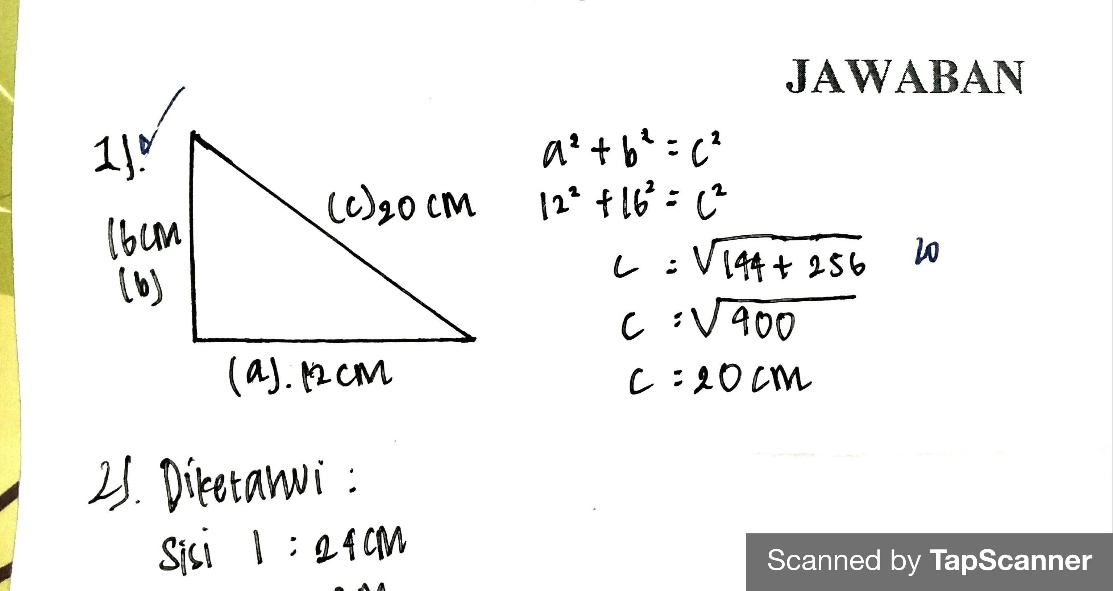 JAWABAN
1).
16 cm
(b)
(c) 20 cm
(a). 12 cm
a² + b² = c²
12² + 16² = c²
c = √144 + 256
20
c = √400
c = 20 cm
2). Diketahui :
Sisi 1 : 24 cm
Scanned by TapScanner